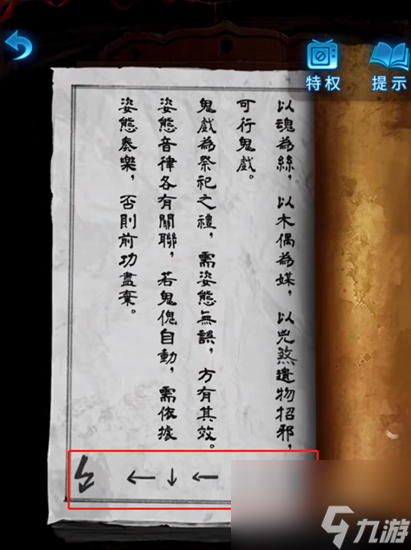 特权
提示
以魂為絲，以木偶為媒，以兇煞遺物招邪，
可行鬼戲。
鬼戲為祭祀之禮，需姿態無誤，方有其效。
姿態音律各有關聯，若鬼傀自動，需依據
姿態奏樂，否則前功盡棄。
← ↓ ←
九游